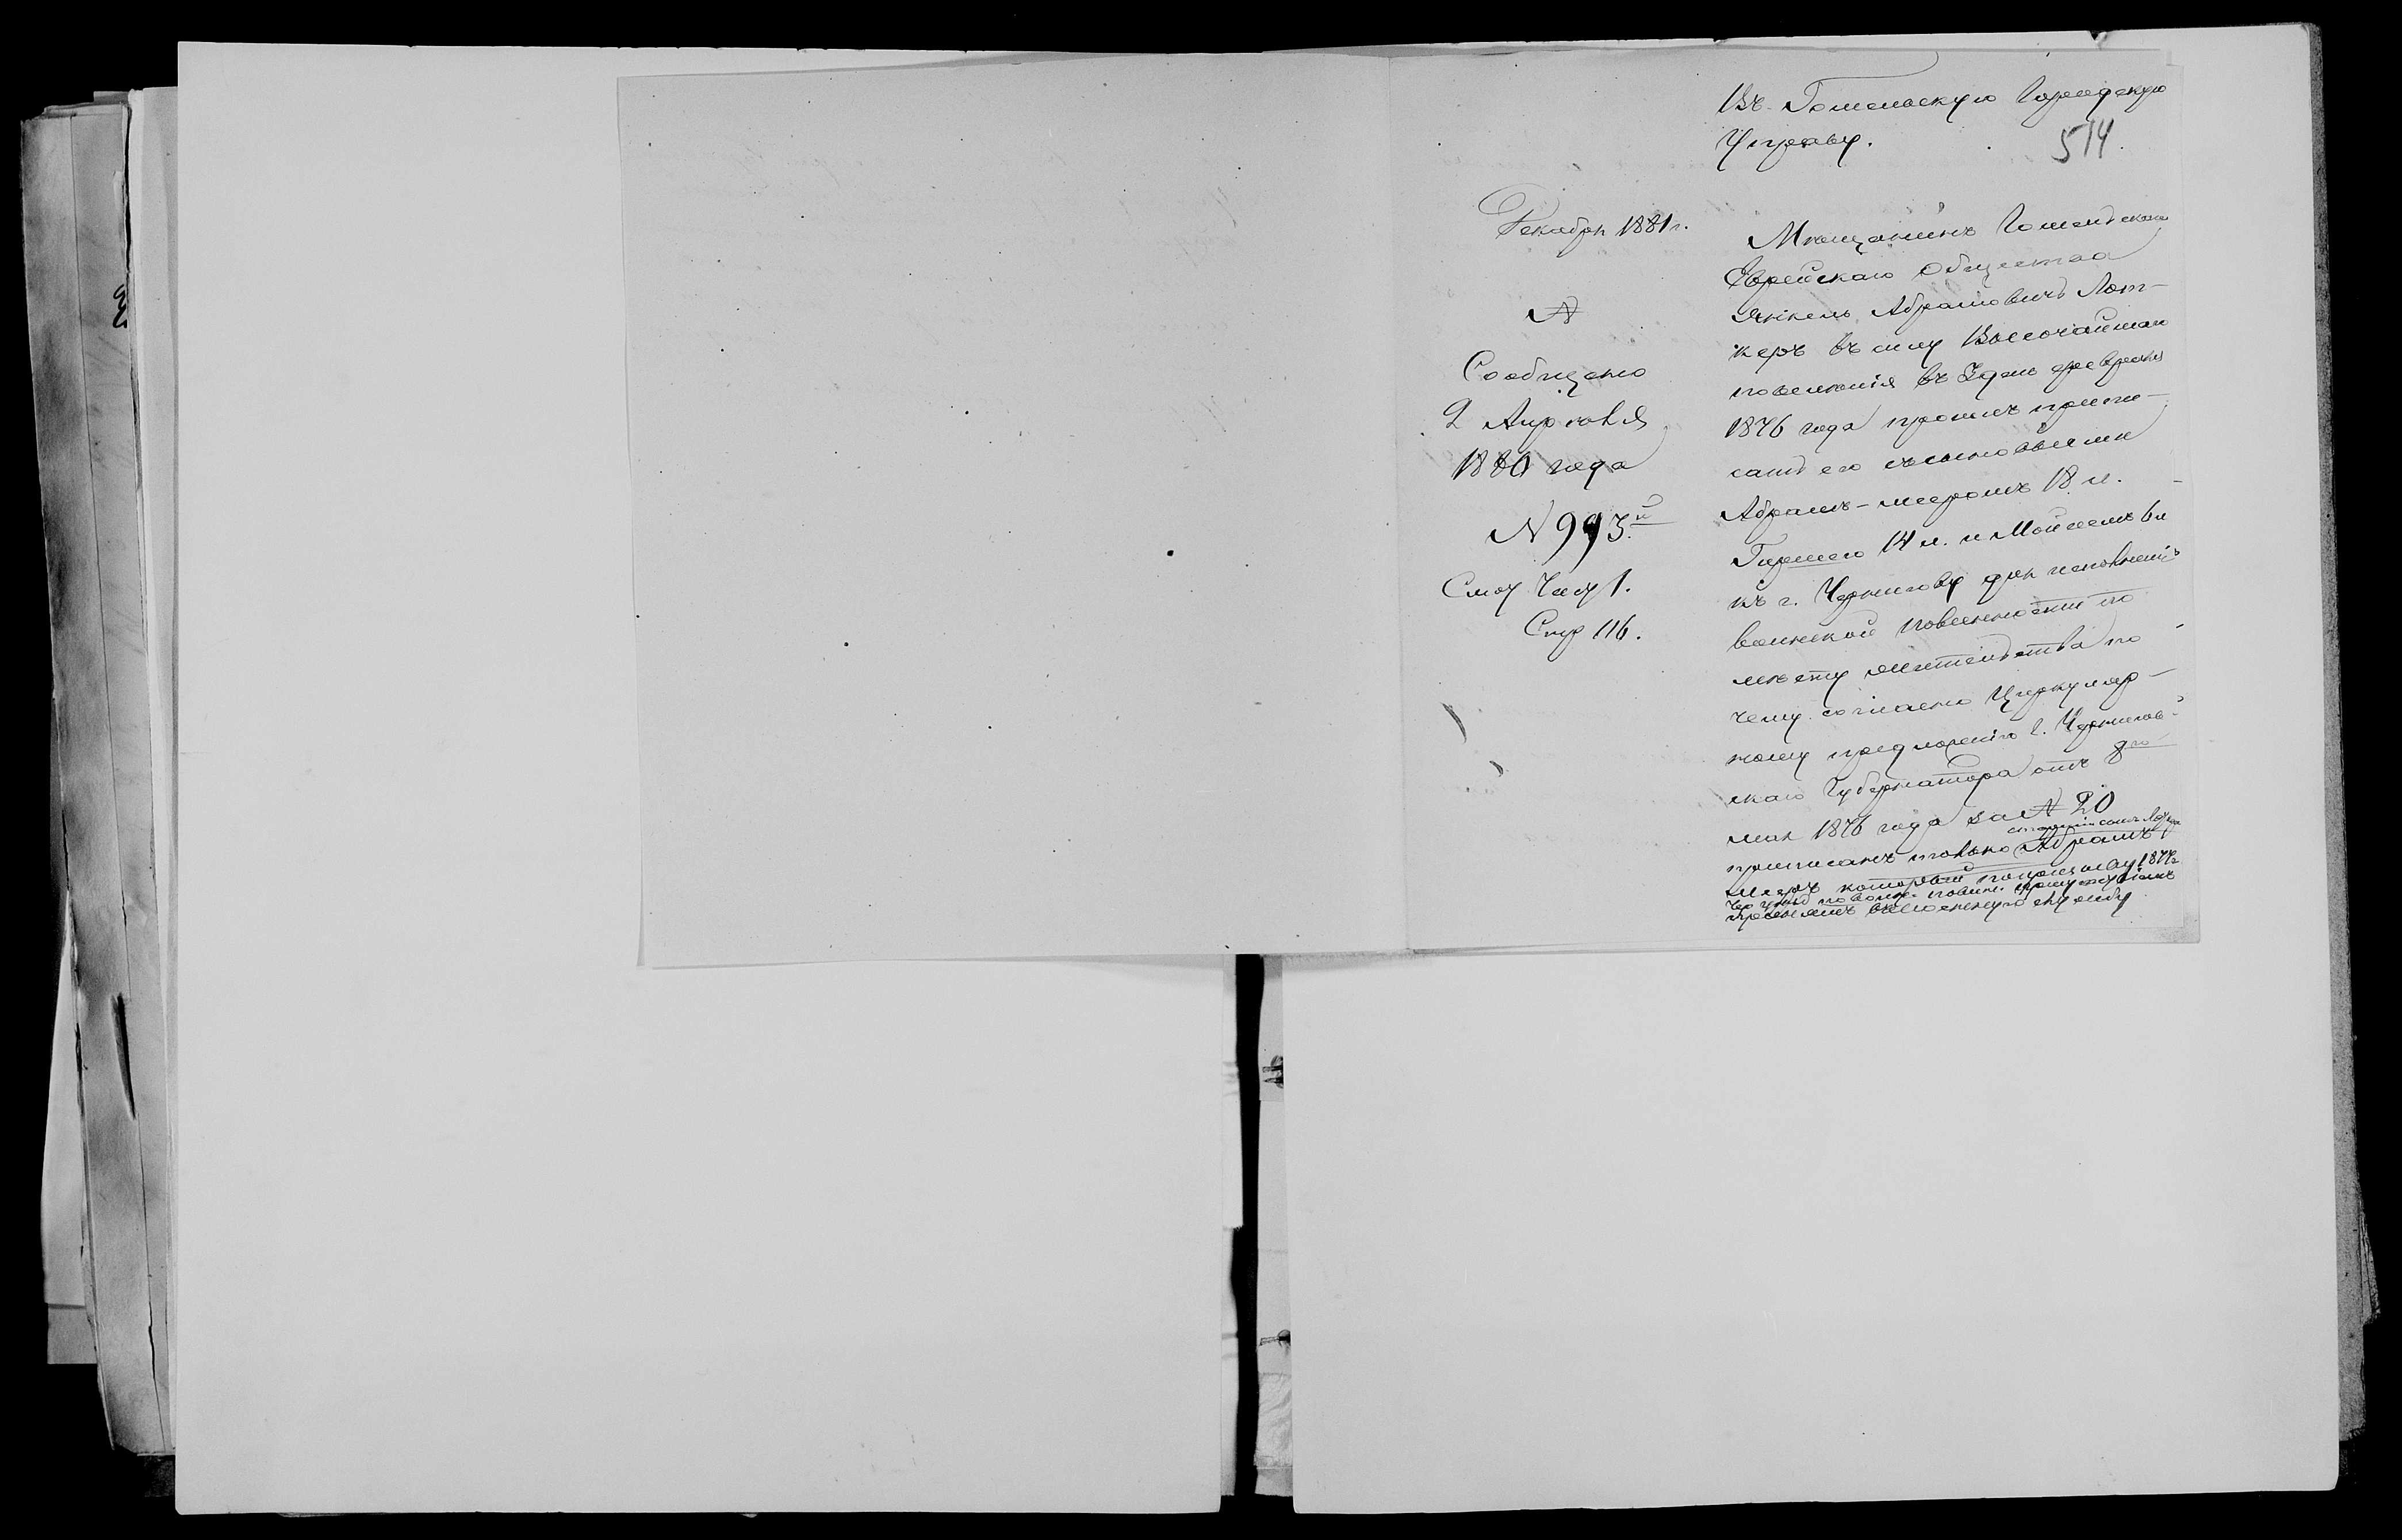 Въ Гомельскую Городскую
Управу.
514
Декабря 1881 г.
№
Сообщено
2 Апреля
1880 года
№ 993.й
Смот. Часу 1.
Стр 116.
Мѣщанинъ Гомельскаго
Еврейскаго Общества
Янкель Абрамовичъ Лот-
керъ въ силу Высочайшаго
повеленія въ 3 день февраля
1876 года просилъ припи-
сать его съ сыновьями
Абрамъ-Мееромъ 18 л.
Гиршею 14 л. и Мойсеемъ 6 л
къ г. Чернигову для исполненія
воинской повинности по
мѣсту жительства по
чему согласно Циркуляр-
ному предложенію г. Чернигов-
скаго Губернатора отъ 8го
мая 1876 года за № 20
приписанъ только старшій сынъ Абрамъ
Мееръ который по призыву 1877 г.
по воин. повин.